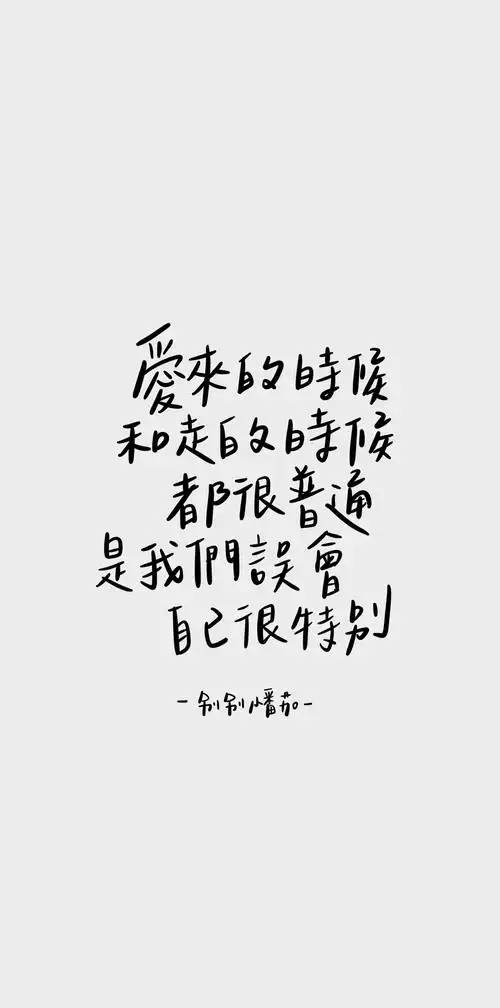 愛來的時候
和走的時候
都很普通
是我們誤會
自己很特別
-別別蟠茄-